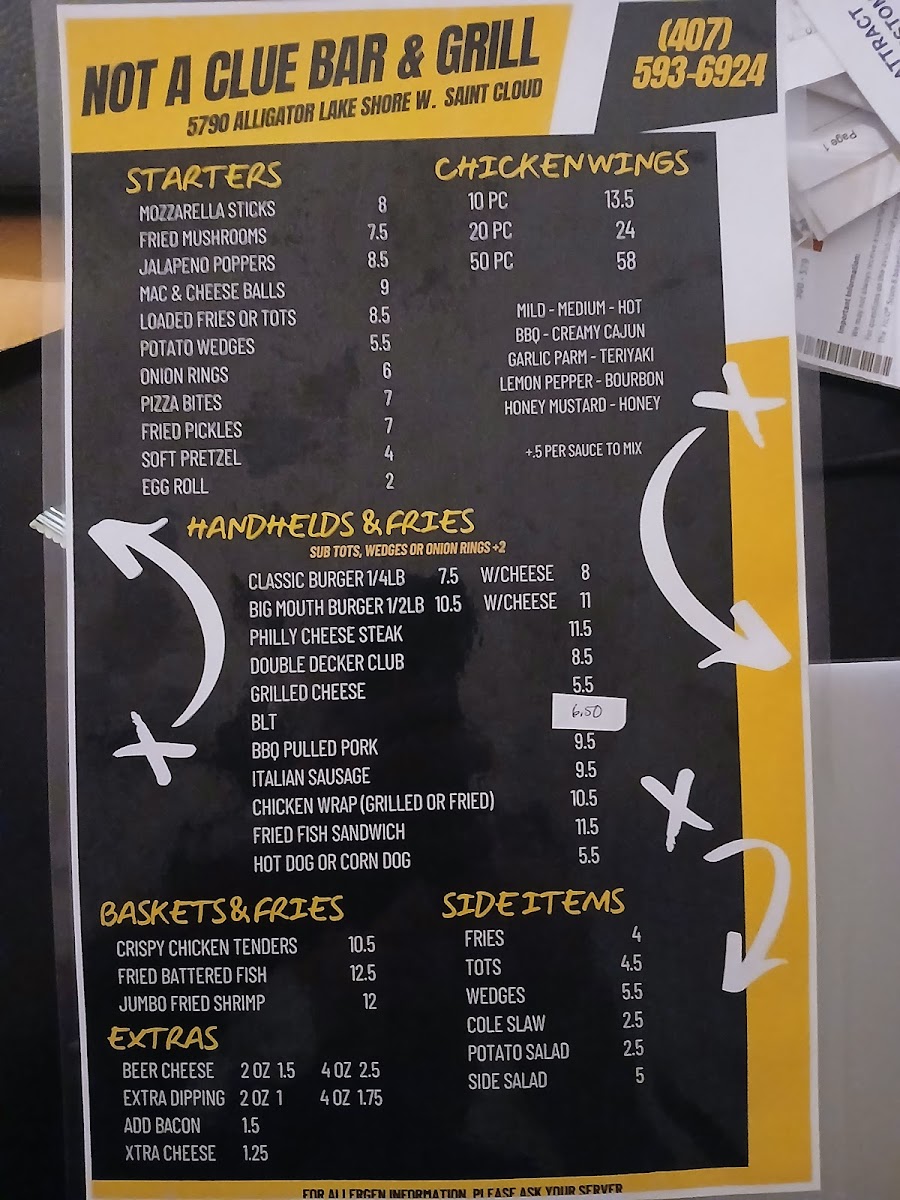 NOT A CLUE BAR & GRILL
5790 ALLIGATOR LAKE SHORE W. SAINT CLOUD
(407)
593-6924
STARTERS
MOZZARELLA STICKS 8
FRIED MUSHROOMS 7.5
JALAPENO POPPERS 8.5
MAC & CHEESE BALLS 9
LOADED FRIES OR TOTS 8.5
POTATO WEDGES 5.5
ONION RINGS 6
PIZZA BITES 7
FRIED PICKLES 7
SOFT PRETZEL 4
EGG ROLL 2
CHICKEN WINGS
10 PC 13.5
20 PC 24
50 PC 58
MILD - MEDIUM - HOT
BBQ - CREAMY CAJUN
GARLIC PARM - TERIYAKI
LEMON PEPPER - BOURBON
HONEY MUSTARD - HONEY
+.5 PER SAUCE TO MIX
HANDHELDS & FRIES
SUB TOTS, WEDGES OR ONION RINGS +2
CLASSIC BURGER 1/4LB 7.5 W/CHEESE 8
BIG MOUTH BURGER 1/2LB 10.5 W/CHEESE 11
PHILLY CHEESE STEAK 11.5
DOUBLE DECKER CLUB 8.5
GRILLED CHEESE 5.5
BLT 6.50
BBQ PULLED PORK 9.5
ITALIAN SAUSAGE 9.5
CHICKEN WRAP (GRILLED OR FRIED) 10.5
FRIED FISH SANDWICH 11.5
HOT DOG OR CORN DOG 5.5
BASKETS & FRIES
CRISPY CHICKEN TENDERS 10.5
FRIED BATTERED FISH 12.5
JUMBO FRIED SHRIMP 12
EXTRAS
BEER CHEESE 2 OZ 1.5 4 OZ 2.5
EXTRA DIPPING 2 OZ 1 4 OZ 1.75
ADD BACON 1.5
XTRA CHEESE 1.25
SIDE ITEMS
FRIES 4
TOTS 4.5
WEDGES 5.5
COLE SLAW 2.5
POTATO SALAD 2.5
SIDE SALAD 5
FOR ALLERGEN INFORMATION, PLEASE ASK YOUR SERVER
ATTRACT
Page 1
Important Information: